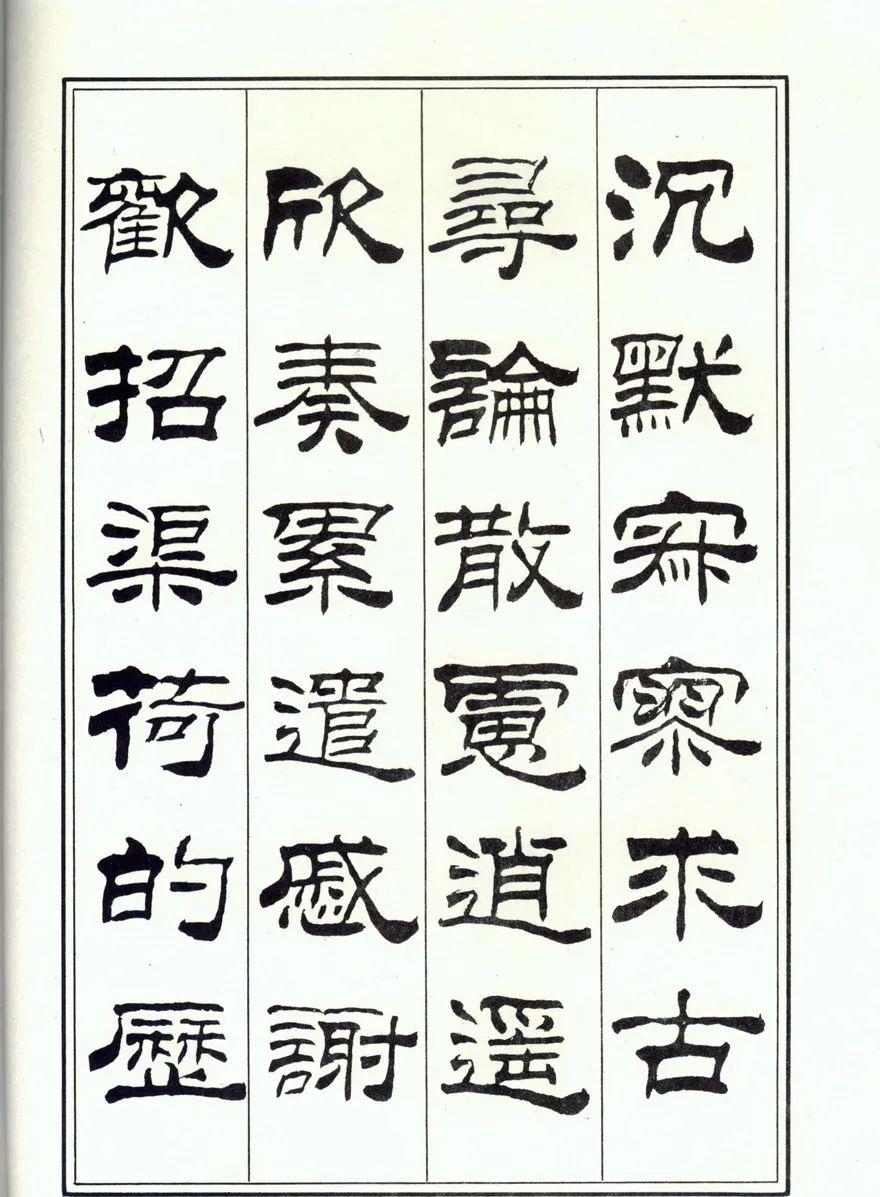 沉默寂寥求古
尋論散慮逍遥
欣奏累遣慼謝
歡招渠荷的歷